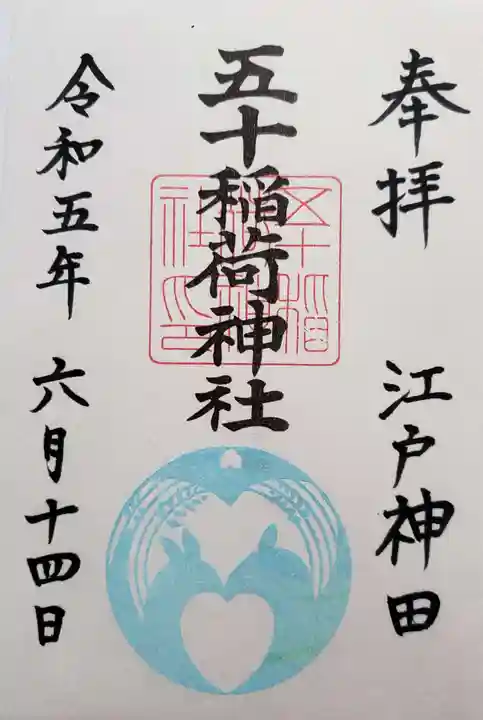 奉拝 江戸神田
五十稲荷神社
令和五年 六月十四日